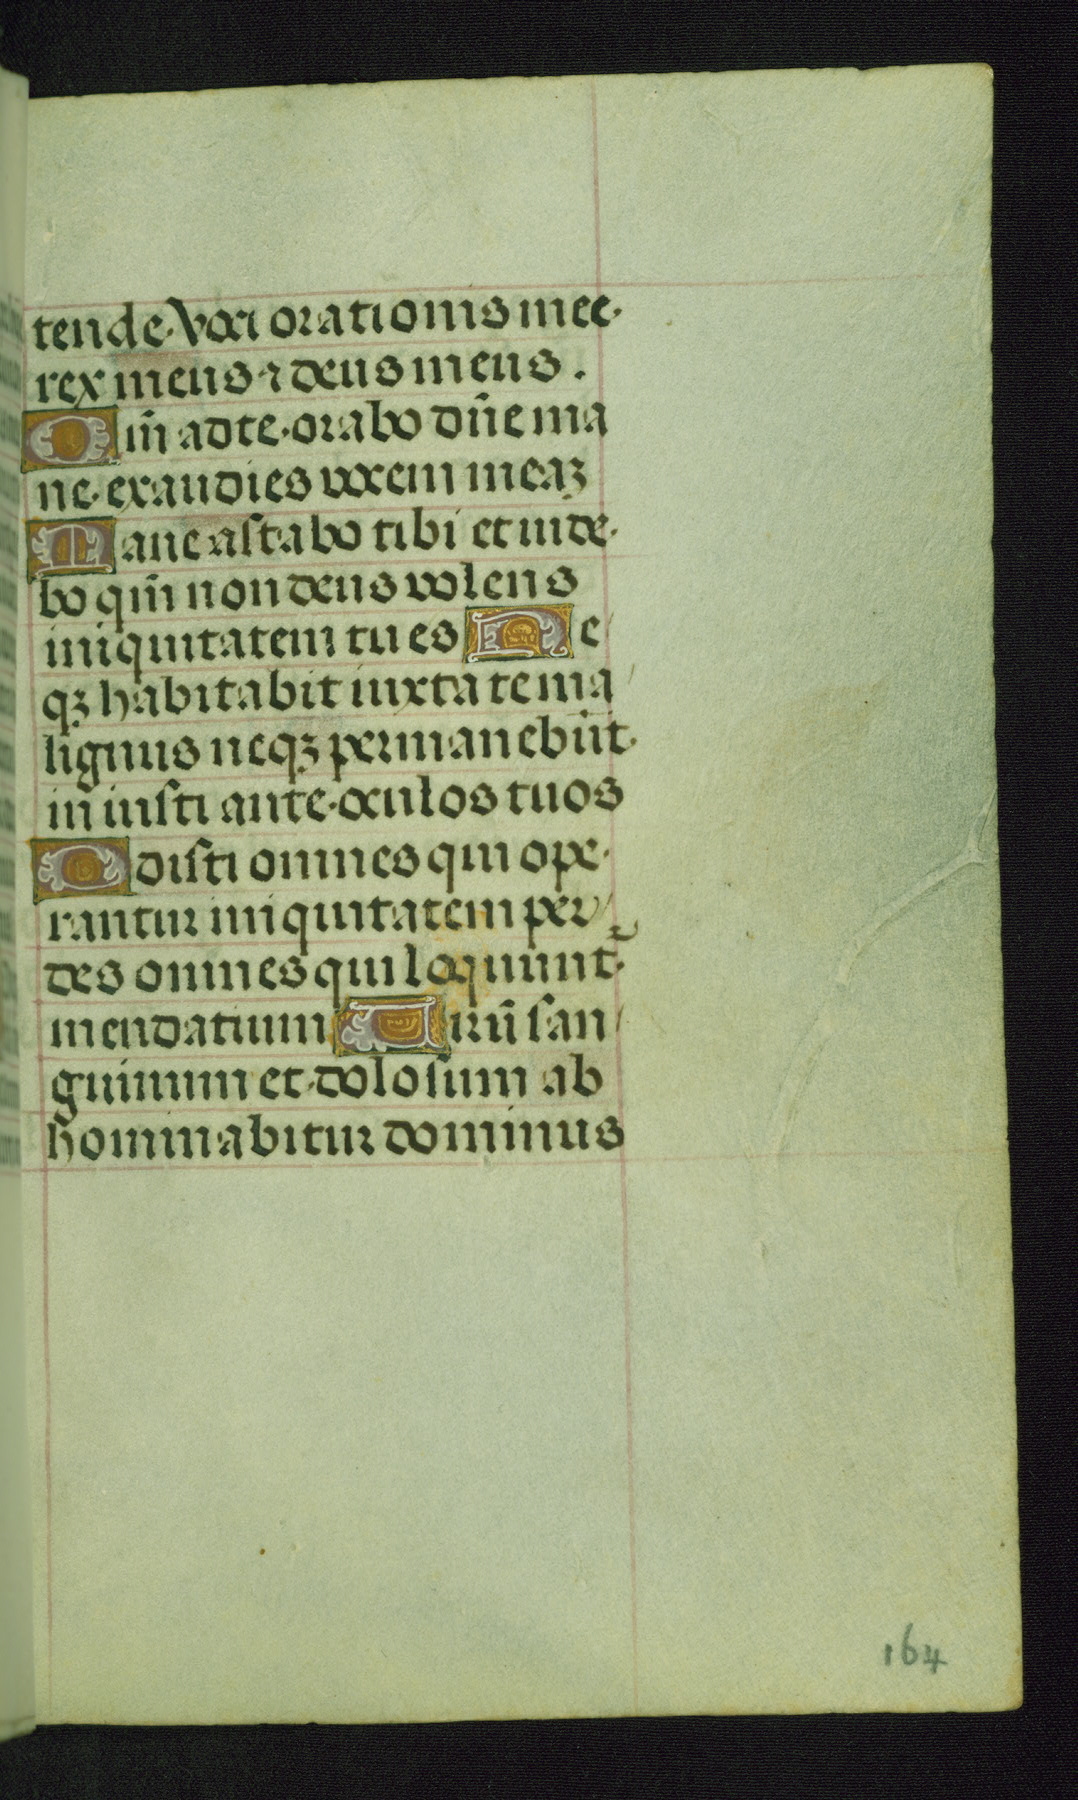 tende. voci orationis mee.
rex meus ⁊ deus meus.
Qm̄ ad te. orabo dn̄e ma
ne. exaudies vocem meaȝ
Mane astabo tibi et uide.
bo qm̄ non deus volens
iniquitatem tu es Ne
qȝ habitabit iuxta te ma
lignus neqȝ permanebūt.
in iusti ante. oculos tuos
Odisti omnes qui ope.
rantur iniquitatem per
des omnes qui loquunt.
mendatium Uirū san
guinum et. dolosum ab
hominabitur dominus
164